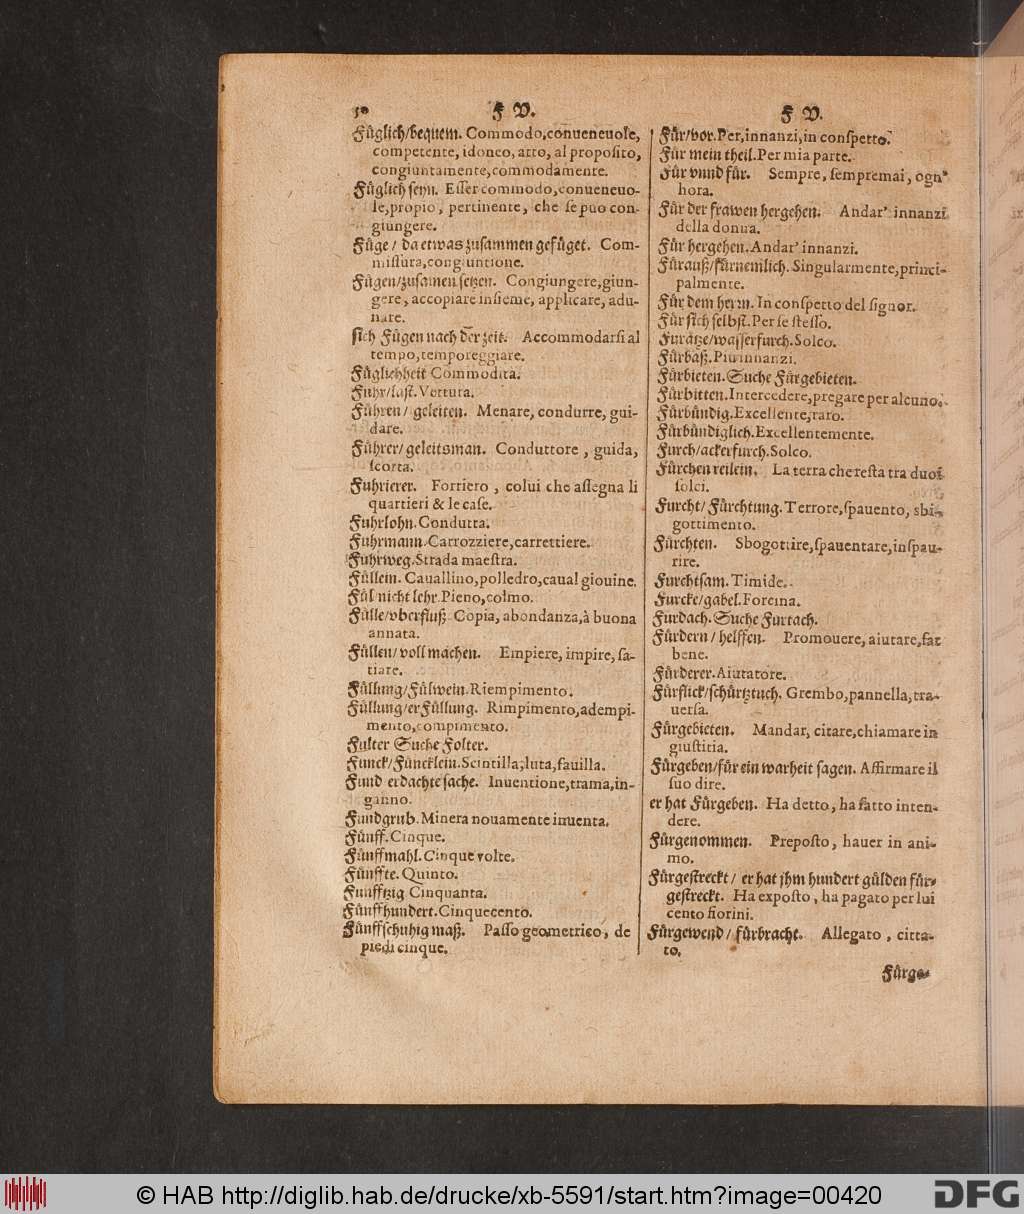 50 F V.
Füglich/bequem. Commodo, conueneuole,
competente, idoneo, atto, al proposito,
congiuntamente, commodamente.
Füglich seyn. Esser commodo, conueneuo-
le, propio, pertinente, che se puo con-
giungere.
Füge/ da etwas zusammen gefüget. Com-
missura, congiuntione.
Fügen/zusamen setzen. Congiungere, giun-
gere, accopiare insieme, applicare, adu-
nare.
sich Fügen nach der zeit. Accommodarsi al
tempo, temporeggiare.
Füglichheit Commodita.
Fuhr/last. Vettura.
Führen/ geleiten. Menare, condurre, gui-
dare.
Führer/ geleitsman. Conduttore, guida,
scorta.
Fuhrierer. Forriero, colui che assegna li
quartieri & le case.
Fuhrlohn. Condutta.
Fuhrmann. Carrozziere, carrettiere.
Fuhrweg. Strada maestra.
Füllein. Cauallino, polledro, caual giouine.
Fül nicht lehr. Pieno, colmo.
Fülle/vberfluß. Copia, abondanza, à buona
annata.
Füllen/ voll machen. Empiere, impire, sa-
tiare.
Füllung/Fülwein. Riempimento.
Füllung/erFüllung. Rimpimento, adempi-
mento, compimento.
Fulter Suche Folter.
Funck/Füncklein. Scintilla, luta, fauilla.
Fund erdachte sache. Inuentione, trama, in-
ganno.
Fundgrub. Minera nouamente inuenta.
Fünff. Cinque.
Fünffmahl. Cinque volte.
Fünffte. Quinto.
Funfftzig Cinquanta.
Fünffhundert. Cinquecento.
Fünffschuhig maß. Passo geometrico, de
piedi cinque.
F V.
Für/vor. Per, innanzi, in conspetto.
Für mein theil. Per mia parte.
Für vnnd für. Sempre, sempremai, ogn'
hora.
Für der frawen hergehen. Andar' innanzi
della donna.
Für hergehen. Andar' innanzi.
Fürauß/fürnemlich. Singularmente, princi-
palmente.
Für dem herrn. In conspetto del signor.
Für sich selbst. Per se stesso.
Furätze/wasserfurch. Solco.
Fürbaß. Piu innanzi.
Fürbieten. Suche Fürgebieten.
Fürbitten. Intercedere, pregare per alcuno.
Fürbündig. Excellente, raro.
Fürbündiglich. Excellentemente.
Furch/ackerfurch. Solco.
Fürchen reilein. La terra che resta tra duoi
solci.
Furcht/ Fürchtung. Terrore, spauento, sbi-
gottimento.
Fürchten. Sbogottire, spauentare, inspau-
rire.
Furchtsam. Timide.
Furcke/gabel. Forcina.
Furdach. Suche Furtach.
Fürdern/ helffen. Promouere, aiutare, far
bene.
Fürderer. Aiutatore.
Fürflick/schürtztuch. Grembo, pannella, tra-
uersa.
Fürgebieten. Mandar, citare, chiamare in
giustitia.
Fürgeben/für ein warheit sagen. Affirmare il
suo dire.
er hat Fürgeben. Ha detto, ha fatto inten-
dere.
Fürgenommen. Preposto, hauer in ani-
mo.
Fürgestreckt/ er hat jhm hundert gülden für-
gestreckt. Ha exposto, ha pagato per lui
cento fiorini.
Fürgewend/ fürbracht. Allegato, citta-
to.
Fürge-
© HAB http://diglib.hab.de/drucke/xb-5591/start.htm?image=00420
DFG